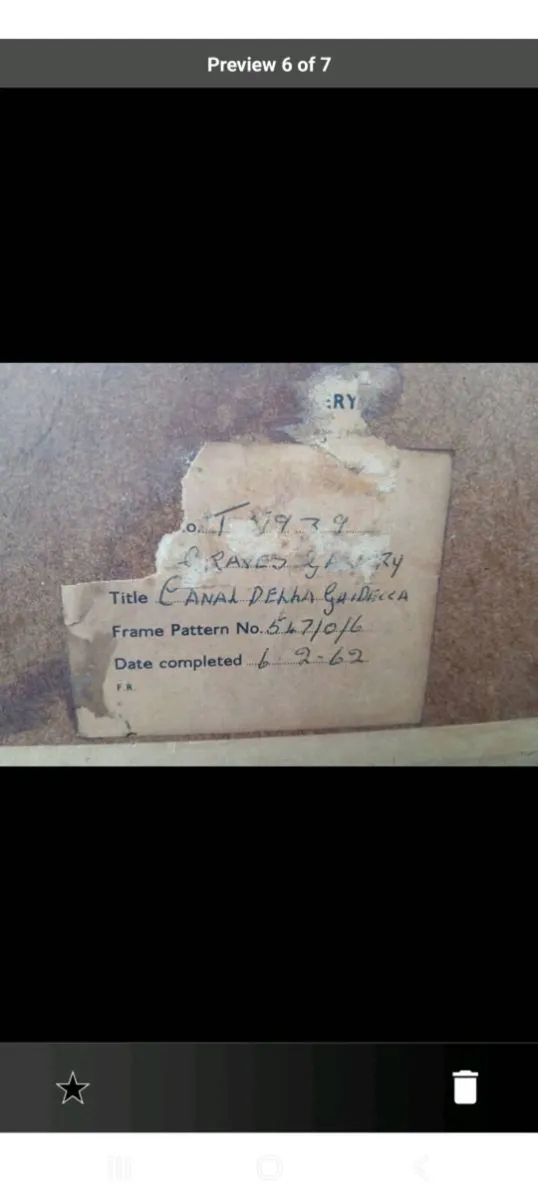 Preview 6 of 7
ERY
o. T 1939
GRAVES
Title CANAL DELLA GAIDECCA
Frame Pattern No. 547/0/6
Date completed 6 2-62
F.R.